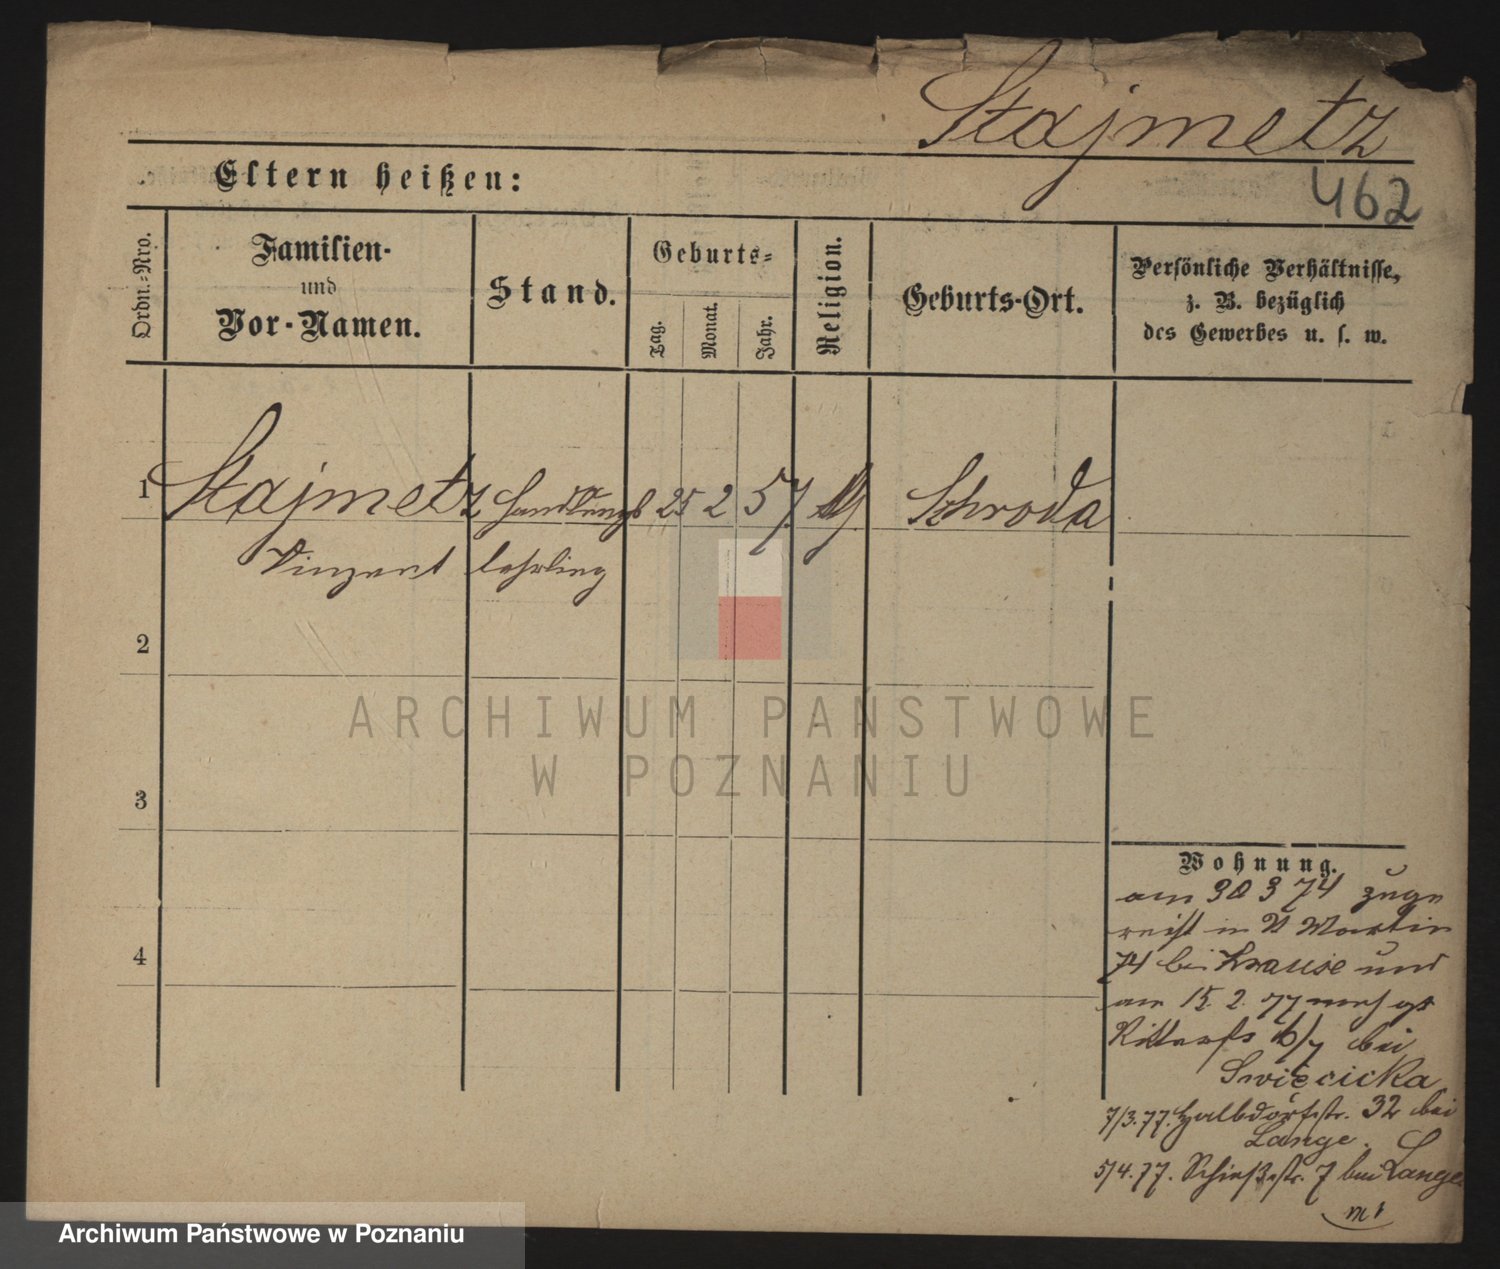 Stajmetz
Eltern heißen:
462
Ordn.-Nro.
Familien-
und
Vor-Namen.
Stand.
Geburts-
Tag.
Monat.
Jahr.
Religion.
Geburts-Ort.
Persönliche Verhältnisse,
z. B. bezüglich
des Gewerbes u. s. w.
1 Stajmetz Handlungs 25 2 57 Schroda
Vinzent lehrling
2
3
4
ARCHIWUM PAŃSTWOWE
W POZNANIU
Wohnung.
am 30 3 74 zuge
reist in St Martin
74 bei Krause und
am 15. 2. 77 nach
Ritterstr 6/7 bei
Swięcicka
7/3.77. Halbdorfstr. 32 bei
Lange.
5/4.77. Schießstr. 7 bei Lange
Archiwum Państwowe w Poznaniu